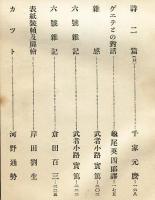 詩二篇(詩)……千家元麿…一六八
ゲエテとの對話……龜尾英四郎譯…一七五
雜感……武者小路實篤…二〇三
六號雜記……武者小路實篤…
六號雜記……倉田百三…二二三
表紙裝幀及扉繪……岸田劉生
カット……河野通勢